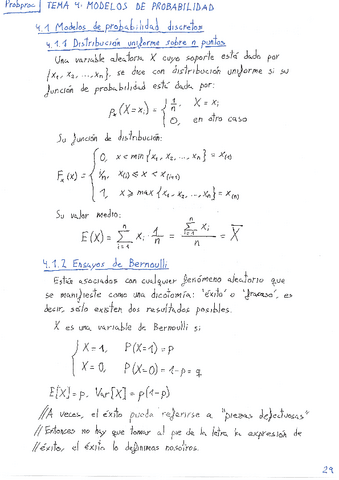 Probproc | TEMA 4: MODELOS DE PROBABILIDAD
4.1 Modelos de probabilidad discretos
4.1.1 Distribución uniforme sobre n puntos
Una variable aleatoria X cuyo soporte está dado por
{x₁, x₂, ..., xₙ}, se dice con distribución uniforme si su
función de probabilidad está dada por:
pₓ(X=xᵢ) = { 1/n, X = xᵢ
0, en otro caso
Su función de distribución:
0, x < min{x₁, x₂, ..., xₙ} = x₍₁₎
Fₓ(x) = { i/n, x₍ᵢ₎ ≤ x < x₍ᵢ₊₁₎
1, x ≥ max{x₁, x₂, ..., xₙ} = x₍ₙ₎
Su valor medio:
E(X) = Σᵢ₌₁ⁿ xᵢ · 1/n = Σᵢ₌₁ⁿ xᵢ / n = X̄
4.1.2 Ensayos de Bernoulli
Están asociados con cualquier fenómeno aleatorio que
se manifieste como una dicotomía: "éxito" o "fracaso", es
decir, sólo existen dos resultados posibles.
X es una variable de Bernoulli si:
{ X = 1, P(X=1) = p
X = 0, P(X=0) = 1-p = q
E[X] = p, Var[X] = p(1-p)
//A veces, el éxito puede referirse a "piezas defectuosas"
//Entonces no hay que tomar al pie de la letra la expresión de
//éxito, el éxito lo definimos nosotros.
29